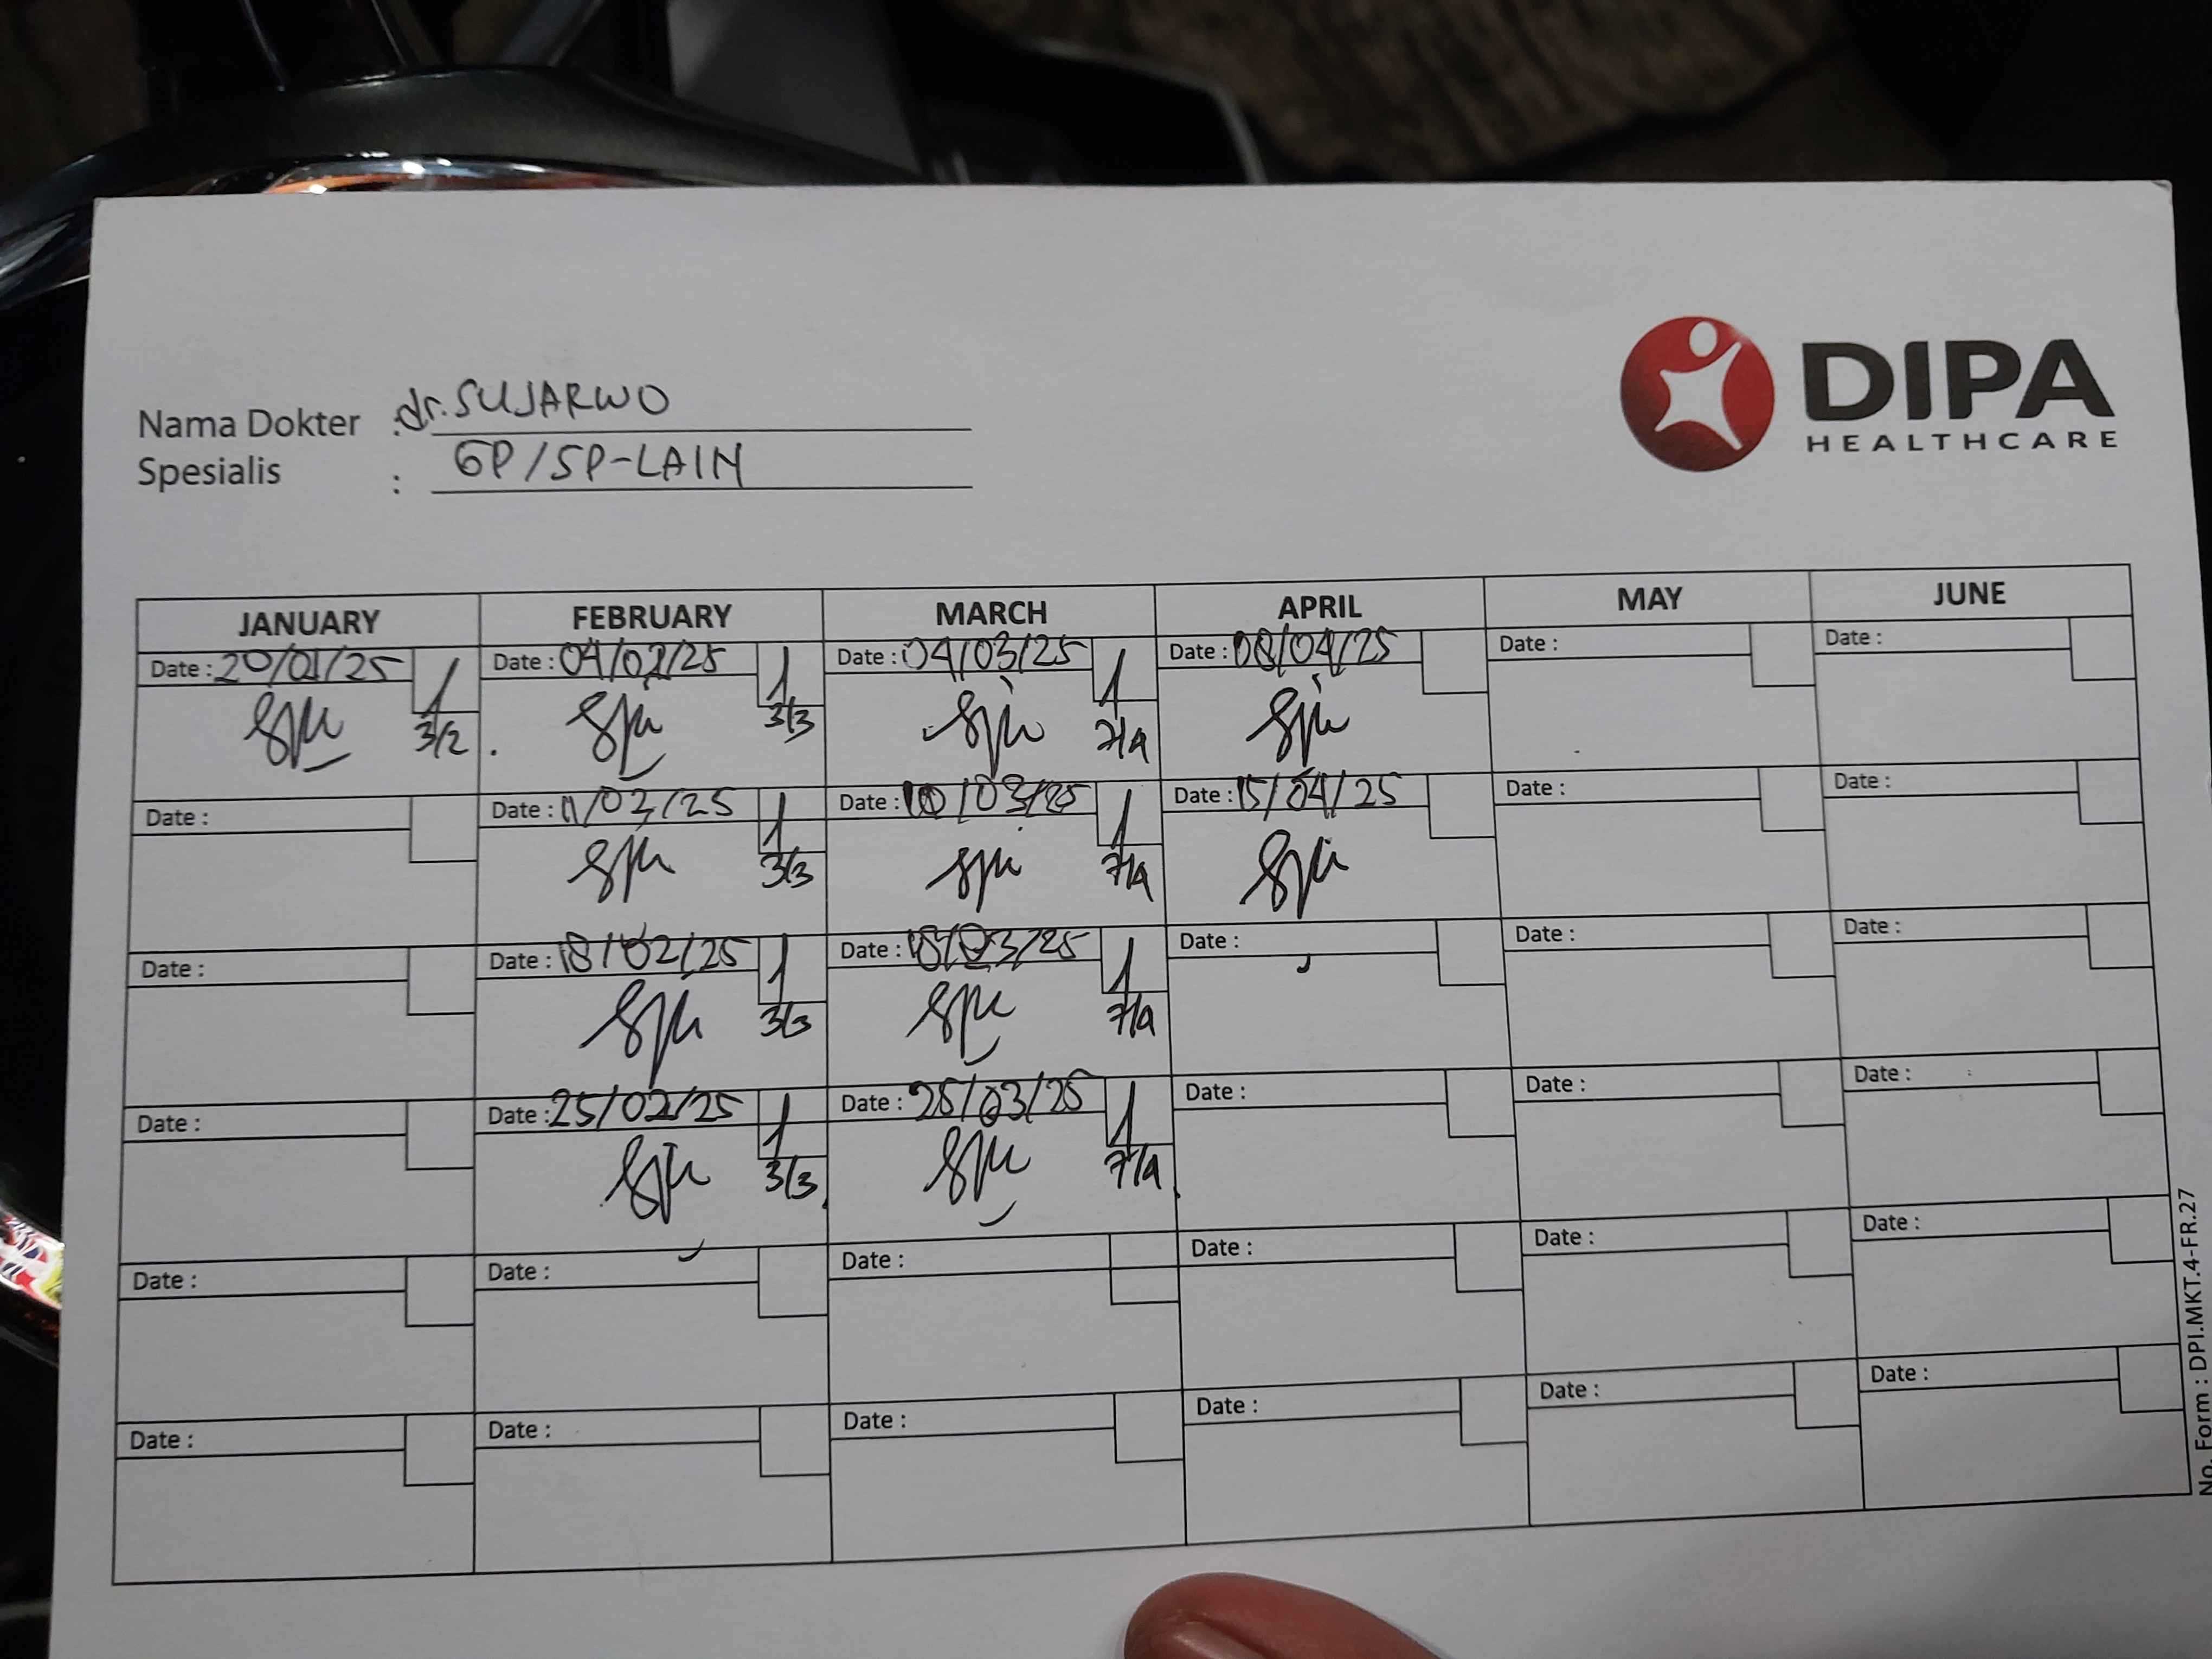 DIPA
HEALTHCARE
Nama Dokter : dr. SUJARWO
Spesialis : GP/SP-LAIN
JANUARY FEBRUARY MARCH APRIL MAY JUNE
Date : 20/01/25 Date : 04/02/25 Date : 04/03/25 Date : 08/04/25 Date : Date :
3/2 3/3 7/4
Date : Date : 11/02/25 Date : 10/03/25 Date : 15/04/25 Date : Date :
3/3 7/4
Date : Date : 18/02/25 Date : 18/03/25 Date : Date : Date :
3/3 7/4
Date : Date : 25/02/25 Date : 25/03/25 Date : Date : Date :
3/3 7/4
Date : Date : Date : Date : Date : Date :
Date : Date : Date : Date : Date : Date :
No. Form : DPI.MKT.4-FR.27